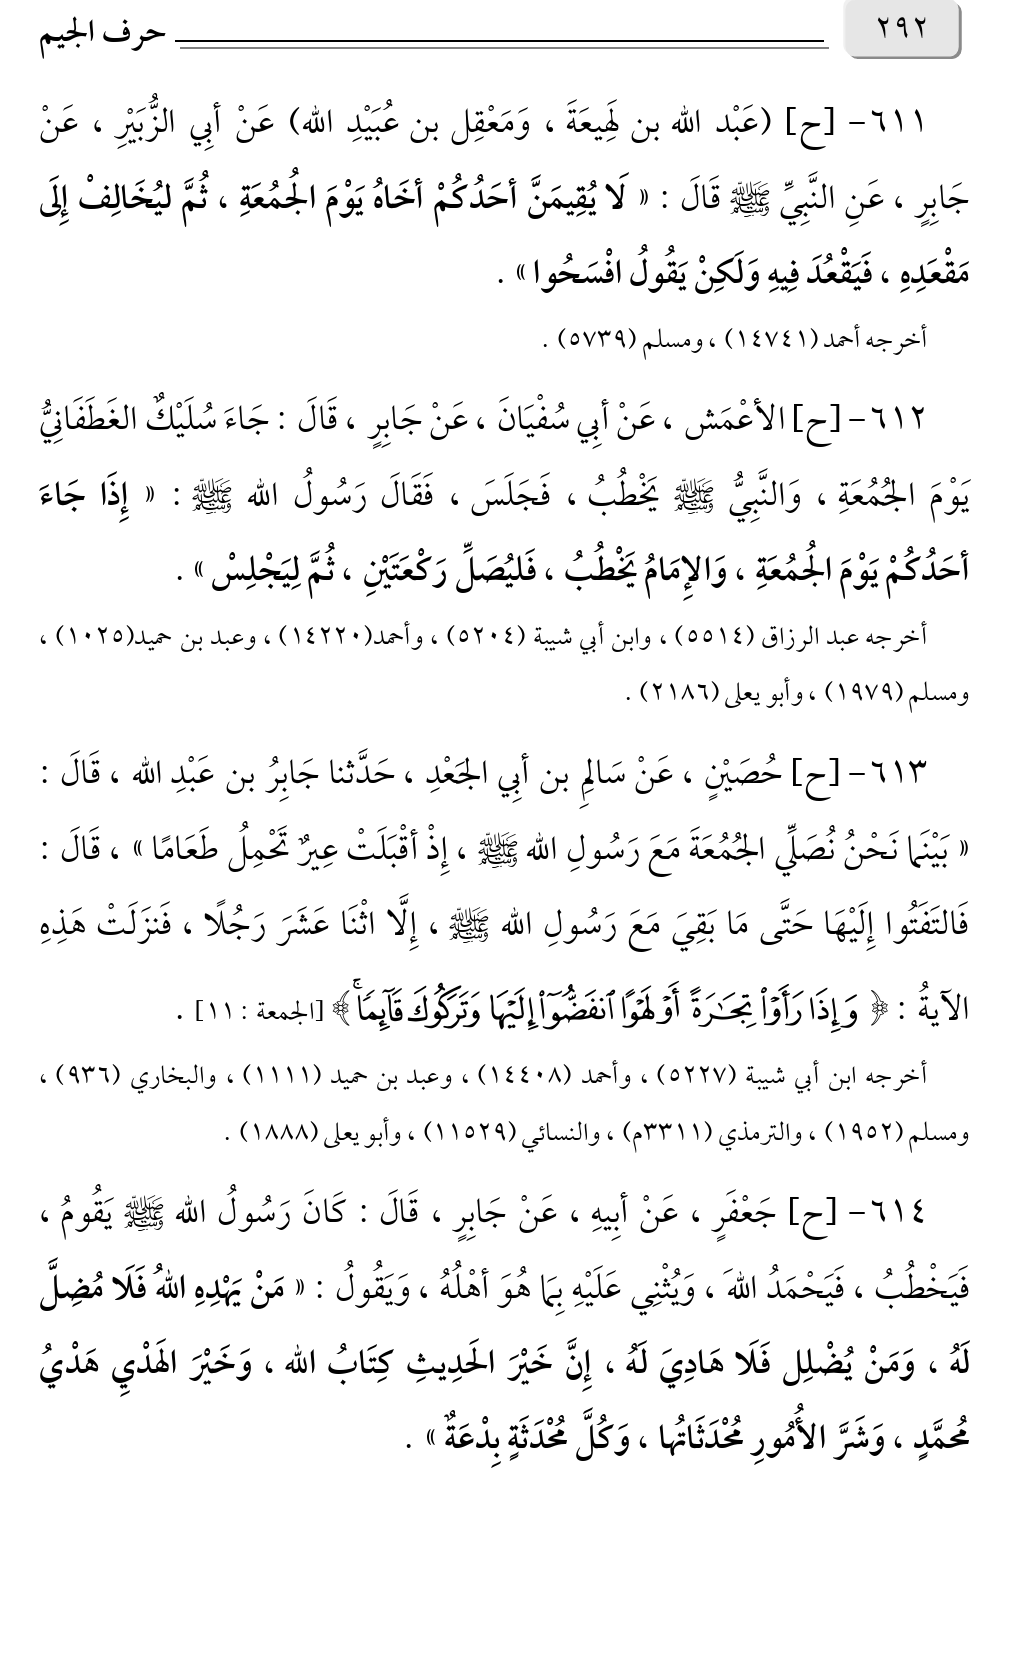 ٢٩٢ حرف الجيم
٦١١- [ح] (عَبْد الله بن لَهِيعَةَ ، وَمَعْقِل بن عُبَيْدِ الله) عَنْ أبِي الزُّبَيْرِ ، عَنْ
جَابِرٍ ، عَنِ النَّبِيِّ ﷺ قَالَ : « لَا يُقِيمَنَّ أحَدُكُمْ أخَاهُ يَوْمَ الجُمُعَةِ ، ثُمَّ ليُخَالِفْ إِلَى
مَقْعَدِهِ ، فَيَقْعُدَ فِيهِ وَلَكِنْ يَقُولُ افْسَحُوا » .
أخرجه أحمد (١٤٧٤١) ، ومسلم (٥٧٣٩) .
٦١٢- [ح] الأعْمَش ، عَنْ أبِي سُفْيَانَ ، عَنْ جَابِرٍ ، قَالَ : جَاءَ سُلَيْكٌ الغَطَفَانِيُّ
يَوْمَ الجُمُعَةِ ، وَالنَّبِيُّ ﷺ يَخْطُبُ ، فَجَلَسَ ، فَقَالَ رَسُولُ الله ﷺ : « إِذَا جَاءَ
أحَدُكُمْ يَوْمَ الجُمُعَةِ ، وَالإِمَامُ يَخْطُبُ ، فَليُصَلِّ رَكْعَتَيْنِ ، ثُمَّ لِيَجْلِسْ » .
أخرجه عبد الرزاق (٥٥١٤) ، وابن أبي شيبة (٥٢٠٤) ، وأحمد(١٤٢٢٠) ، وعبد بن حميد(١٠٢٥) ،
ومسلم (١٩٧٩) ، وأبو يعلى (٢١٨٦) .
٦١٣- [ح] حُصَيْنٍ ، عَنْ سَالِمِ بن أبِي الجَعْدِ ، حَدَّثنا جَابِرُ بن عَبْدِ الله ، قَالَ :
« بَيْنَمَا نَحْنُ نُصَلِّي الجُمُعَةَ مَعَ رَسُولِ الله ﷺ ، إِذْ أقْبَلَتْ عِيرٌ تَحْمِلُ طَعَامًا » ، قَالَ :
فَالتَفَتُوا إِلَيْهَا حَتَّى مَا بَقِيَ مَعَ رَسُولِ الله ﷺ ، إِلَّا اثْنَا عَشَرَ رَجُلًا ، فَنزَلَتْ هَذِهِ
الآيةُ : ﴿ وَإِذَا رَأَوْاْ تِجَـٰرَةً أَوْ لَهْوًا ٱنفَضُّوٓاْ إِلَيْهَا وَتَرَكُوكَ قَآئِمًاۚ ﴾ [الجمعة : ١١] .
أخرجه ابن أبي شيبة (٥٢٢٧) ، وأحمد (١٤٤٠٨) ، وعبد بن حميد (١١١١) ، والبخاري (٩٣٦) ،
ومسلم (١٩٥٢) ، والترمذي (٣٣١١م) ، والنسائي (١١٥٢٩) ، وأبو يعلى (١٨٨٨) .
٦١٤- [ح] جَعْفَرٍ ، عَنْ أبِيهِ ، عَنْ جَابِرٍ ، قَالَ : كَانَ رَسُولُ الله ﷺ يَقُومُ ،
فَيَخْطُبُ ، فَيَحْمَدُ اللهَ ، وَيُثْنِي عَلَيْهِ بِمَا هُوَ أهْلُهُ ، وَيَقُولُ : « مَنْ يَهْدِهِ اللهُ فَلَا مُضِلَّ
لَهُ ، وَمَنْ يُضْلِل فَلَا هَادِيَ لَهُ ، إِنَّ خَيْرَ الحَدِيثِ كِتَابُ الله ، وَخَيْرَ الهَدْيِ هَدْيُ
مُحمَّدٍ ، وَشَرَّ الأُمُورِ مُحْدَثَاتُها ، وَكُلَّ مُحْدَثَةٍ بِدْعَةٌ » .